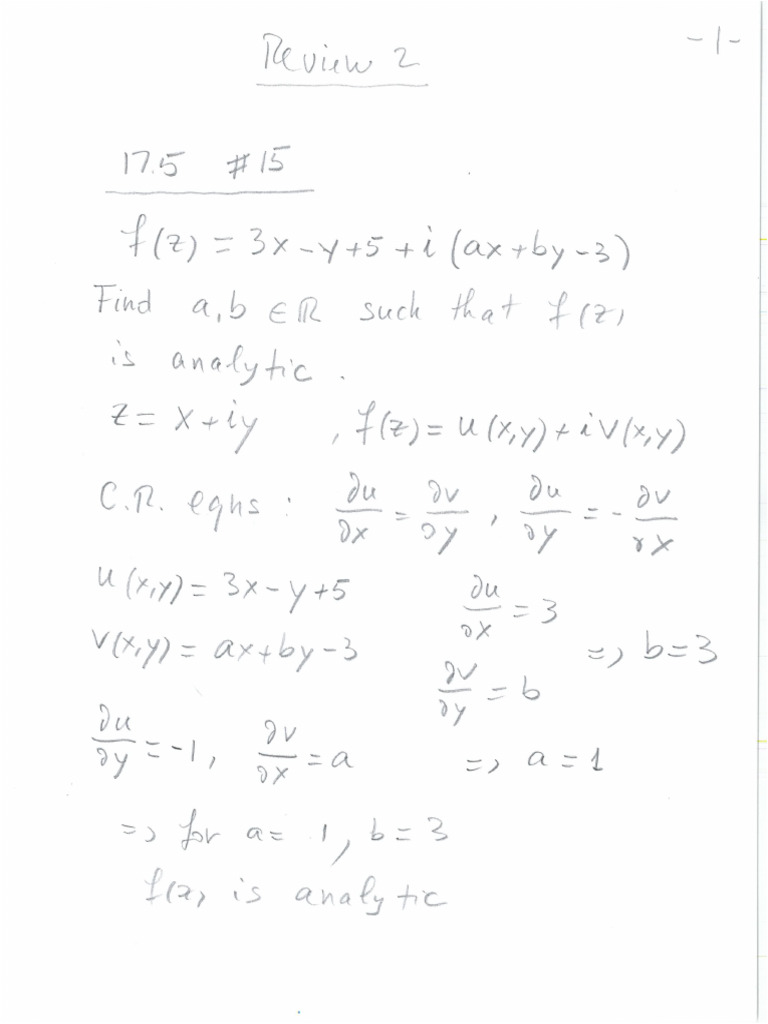 Review 2
-1-
17.5 #15
f(z) = 3x-y+5+i(ax+by-3)
Find a,b ∈ℝ such that f(z)
is analytic.
z = x+iy , f(z) = u(x,y)+iv(x,y)
C.R. eqns: ∂u/∂x = ∂v/∂y , ∂u/∂y = -∂v/∂x
u(x,y) = 3x-y+5 ∂u/∂x = 3
v(x,y) = ax+by-3 ∂v/∂y = b => b=3
∂u/∂y = -1, ∂v/∂x = a => a=1
=> for a= 1, b=3
f(z) is analytic